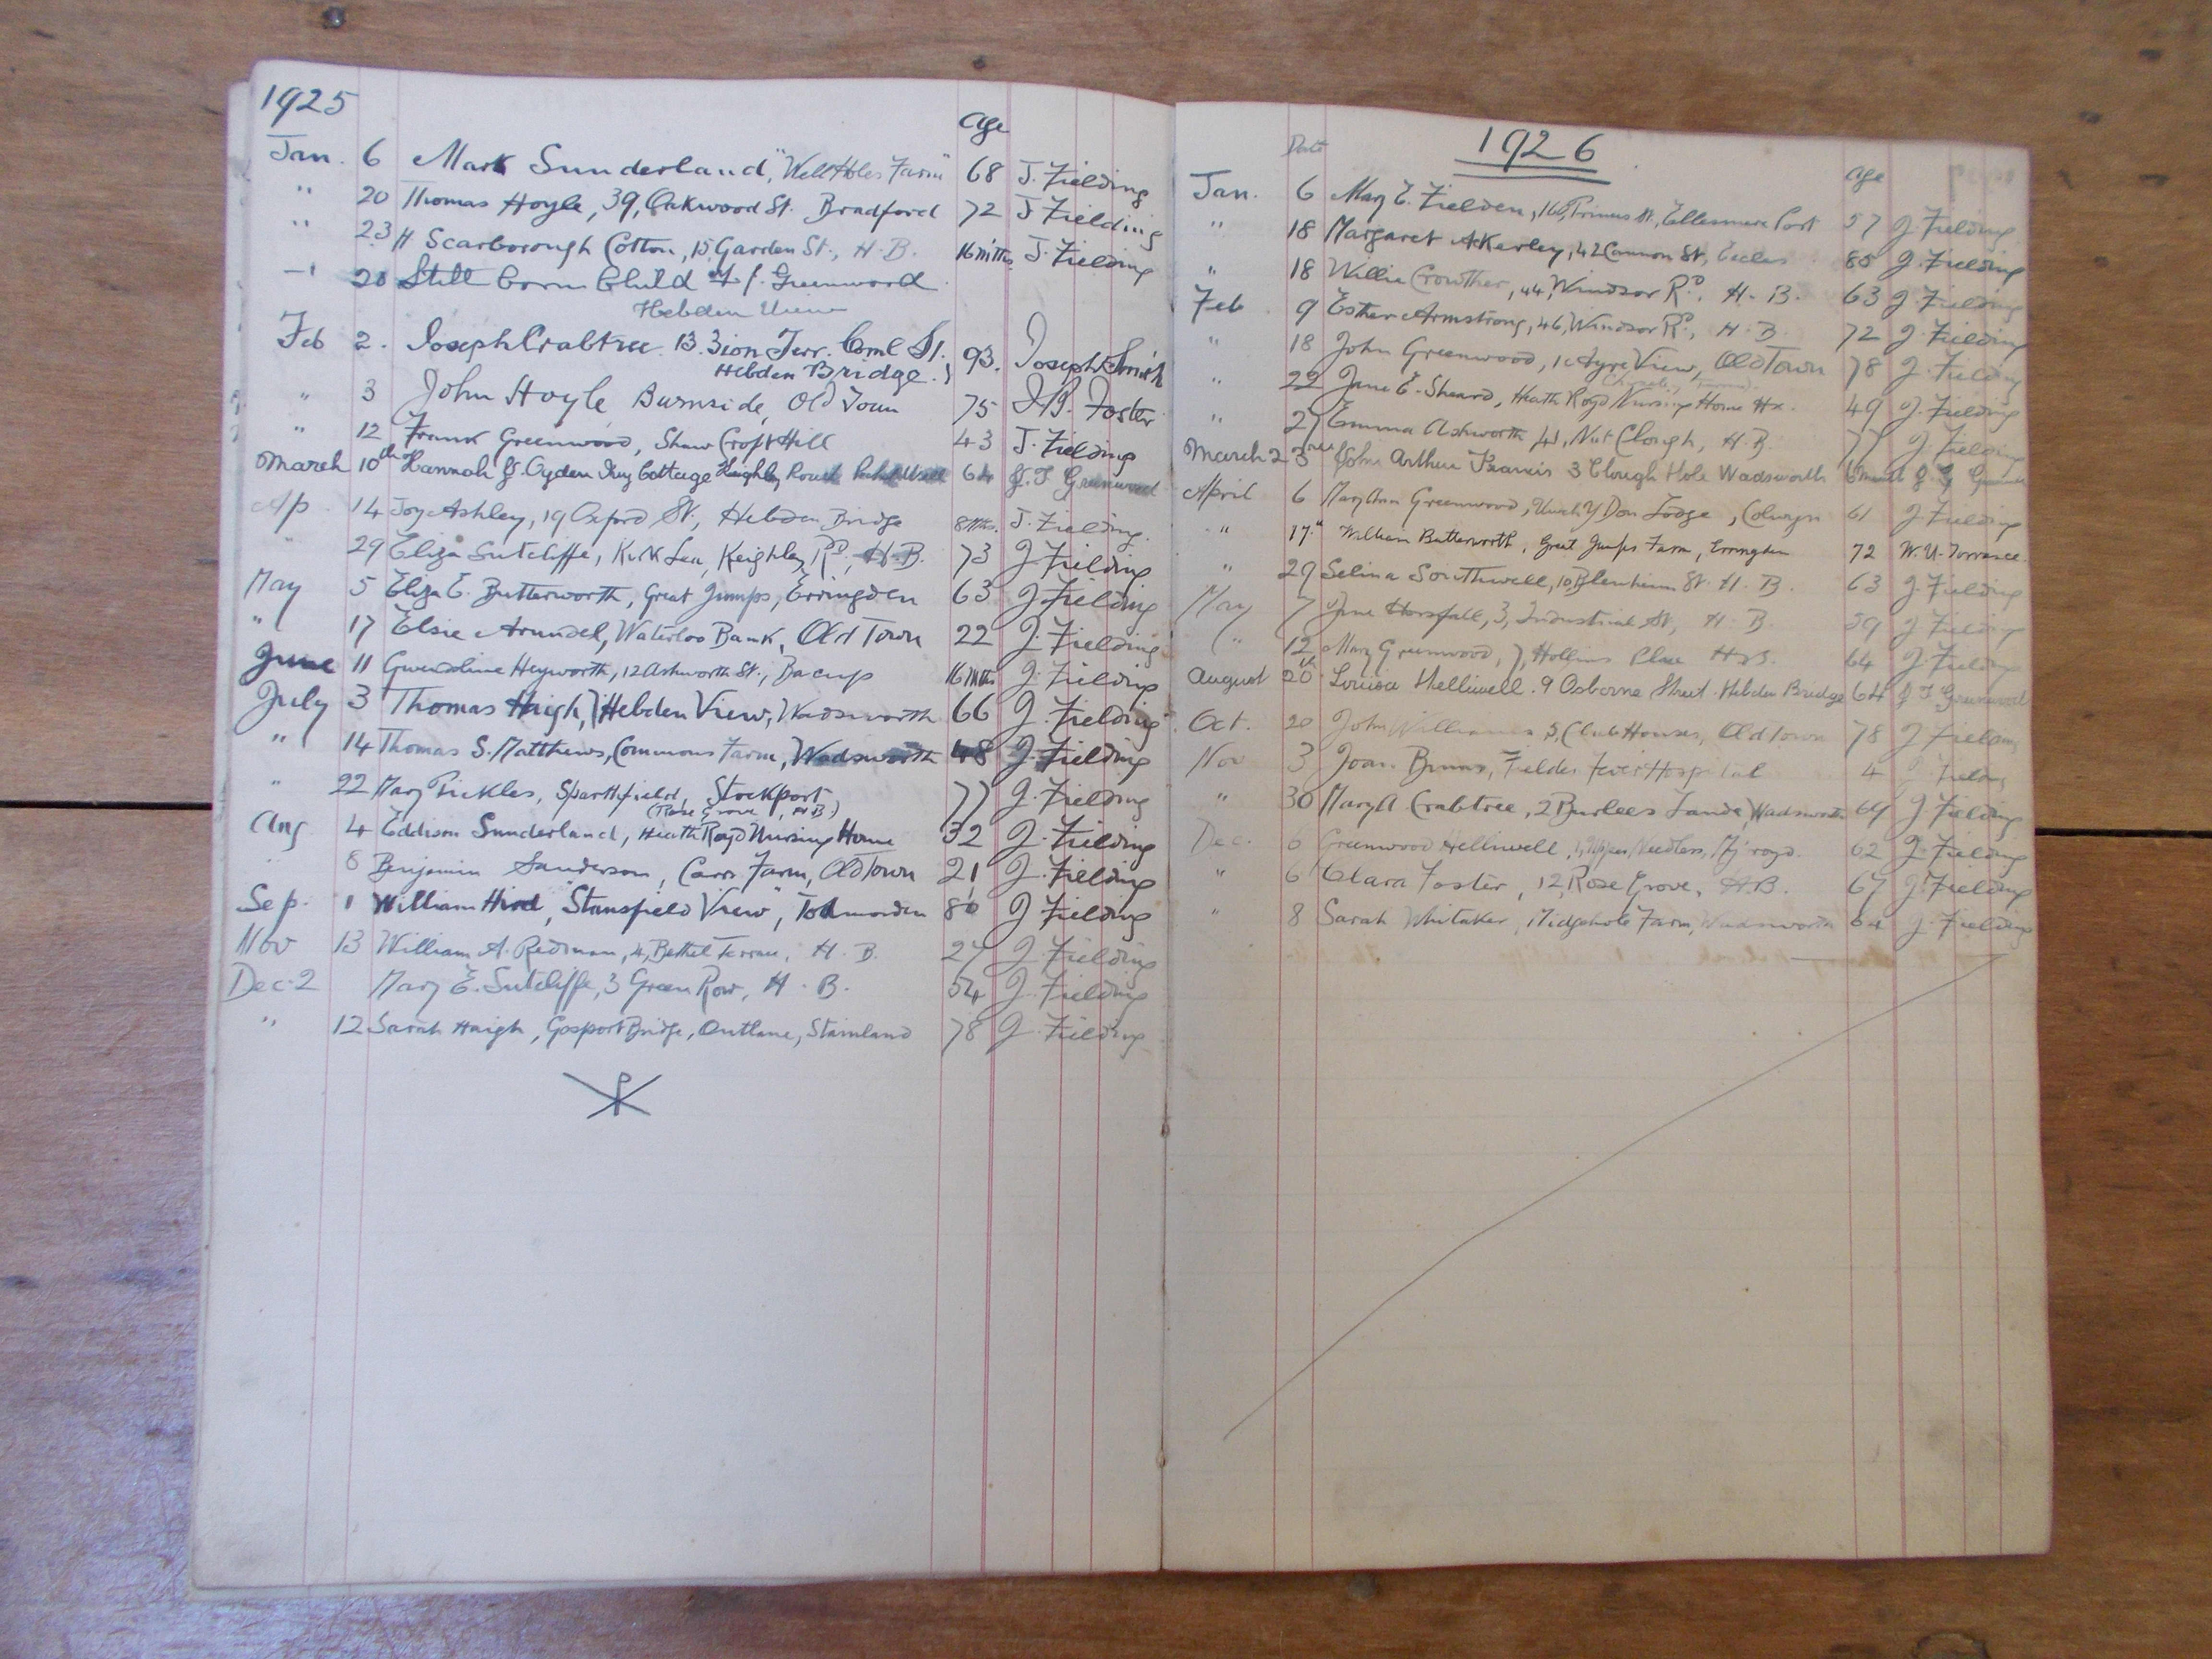 1925
Age
Jan. 6 Mark Sunderland, "Well Holes Farm" 68 J. Fielding
" 20 Thomas Hoyle, 39, Oakwood St. Bradford 72 J Fielding
" 23 H Scarborough Cotton, 15, Garden St., H.B. 16 mths J. Fielding
" Still born Child of J. Greenwood
Hebden View
Feb 2. Joseph Crabtree. 13. Zion Terr. Coml St. 93. Joseph Smith
Hebden Bridge.
" 3 John Hoyle Burnside, Old Town 75 Foster
" 12 Frank Greenwood, Shaw Croft Hill 43 J. Fielding
March 10th Hannah Ogden Ivy Cottage Keighley Road 64 J. F. Greenwood
Ap. 14 Joy Ashley, 19 Oxford St, Hebden Bridge 8 Mths. J. Fielding.
" 29 Eliza Sutcliffe, Kirk Lea, Keighley Rd, H.B. 73 J. Fielding
May 5 Eliza E. Butterworth, Great Jumps, Erringden 63 J. Fielding
" 17 Elsie Arundel, Waterloo Bank, Old Town 22 J. Fielding
June 11 Gwendoline Heyworth, 12 Ashworth St., Bacup 16 Mths J. Fielding
July 3 Thomas Haigh, 7 Hebden View, Wadsworth 66 J. Fielding
" 14 Thomas S. Matthews, Commons Farm, Wadsworth 48 J. Fielding
" 22 Mary Pickles, Sparthfield, Stockport 77 J. Fielding
(Rose Grove, H.B)
Aug 4 Eddison Sunderland, Heath Royd Nursing Home 32 J. Fielding
" 8 Benjamin Sanderson, Carr Farm, Old Town 21 J. Fielding
Sep. 1 William Hird, "Stansfield View", Todmorden 80 J Fielding
Nov 13 William A. Redman, 4, Bethel Terrace, H.B. 27 J. Fielding
Dec. 2 Mary E. Sutcliffe, 3 Green Row, H.B. 54 J. Fielding
" 12 Sarah Haigh, Gosport Bridge, Outlane, Stainland 78 J. Fielding
1926
Date Age
Jan. 6 Mary E. Fielden, Princes St., Ellesmere Port 57 J. Fielding
" 18 Margaret Akerley, 42 Cannon St, Eccles 80 J. Fielding
" 18 Willie Crowther, 44, Windsor Rd., H.B. 63 J Fielding
Feb 9 Esther Armstrong, 46, Windsor Rd, H.B. 72 J. Fielding
" 18 John Greenwood, 1 Ayre View, Old Town 78 J. Fielding
" 22 Jane E. Sheard, Heath Royd Nursing Home Hx. 49 J. Fielding
" 27 Emma Ashworth 41, Nut Clough, H.B. 77 J Fielding
March 23rd John Arthur Francis 3 Clough Hole Wadsworth
April 6 Mary Ann Greenwood, Don Lodge, Colwyn 61 J. Fielding
" 17th William Butterworth, Great Jumps Farm, Erringden 72 W. U. Torrance.
" 29 Selina Southwell, 10 Blenheim St. H.B. 63 J. Fielding
May 7 Jane Horsfall, 3, Industrial St, H.B. 39 J Fielding
" 12 Mary Greenwood, 7, Hollins Place H.B. 64 J. Fielding
August 20th Louisa Helliwell. 9 Osborne Street. Hebden Bridge 64 J F Greenwood
Oct. 20 John Williams, 5, Club Houses, Old Town 78 J Fielding
Nov 3 Joan Binns, Fielden Fever Hospital 4 J Fielding
" 30 Mary A Crabtree, 2 Burlees Lane, Wadsworth 69 J. Fielding
Dec. 6 Greenwood Helliwell, 62 J. Fielding
" 6 Clara Foster, 12, Rose Grove, H.B. 67 J. Fielding
" 8 Sarah Whitaker, Midgehole Farm, Wadsworth 64 J. Fielding